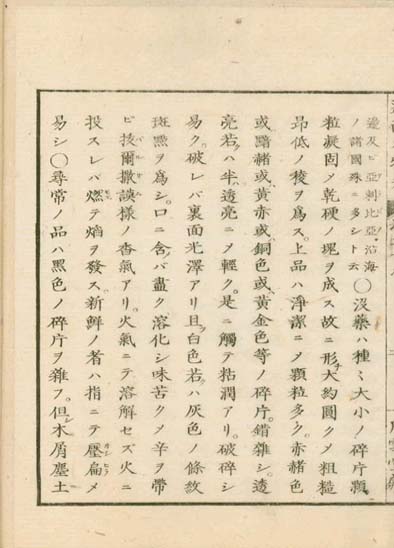 邊及ビ亞刺比亞沿海
ノ諸國殊ニ多シト云
〇沒藥ハ種々大小ノ碎片顆
粒凝固メ乾硬ノ塊ヲ成ス故ニ形チ大約圓クメ粗糙
昂低ノ稜ヲ爲ス。上品ハ淨潔ニメ顆粒多ク。赤赭色
或ハ黯赭或ハ黃赤或ハ銅色或ハ黃金色等ノ碎片。錯雜シ。透
亮若クハ半透亮ニメ輕ク。是ニ觸テ粘潤アリ。破碎シ
易ク。破レバ裏面光澤アリ且ツ白色若クハ灰色ノ條紋
斑㸃ヲ爲シ。口ニ含バ盡ク溶化シ味苦クメ辛ヲ帶
ビ拔爾撒謨樣ノ香氣アリ。火氣ニテ溶解セズ火ニ
投スレバ燃テ焰ヲ發ス。新鮮ノ者ハ指ニテ壓扁メ
易シ〇尋常ノ品ハ黑色ノ碎片ヲ雜フ。但シ木屑塵土